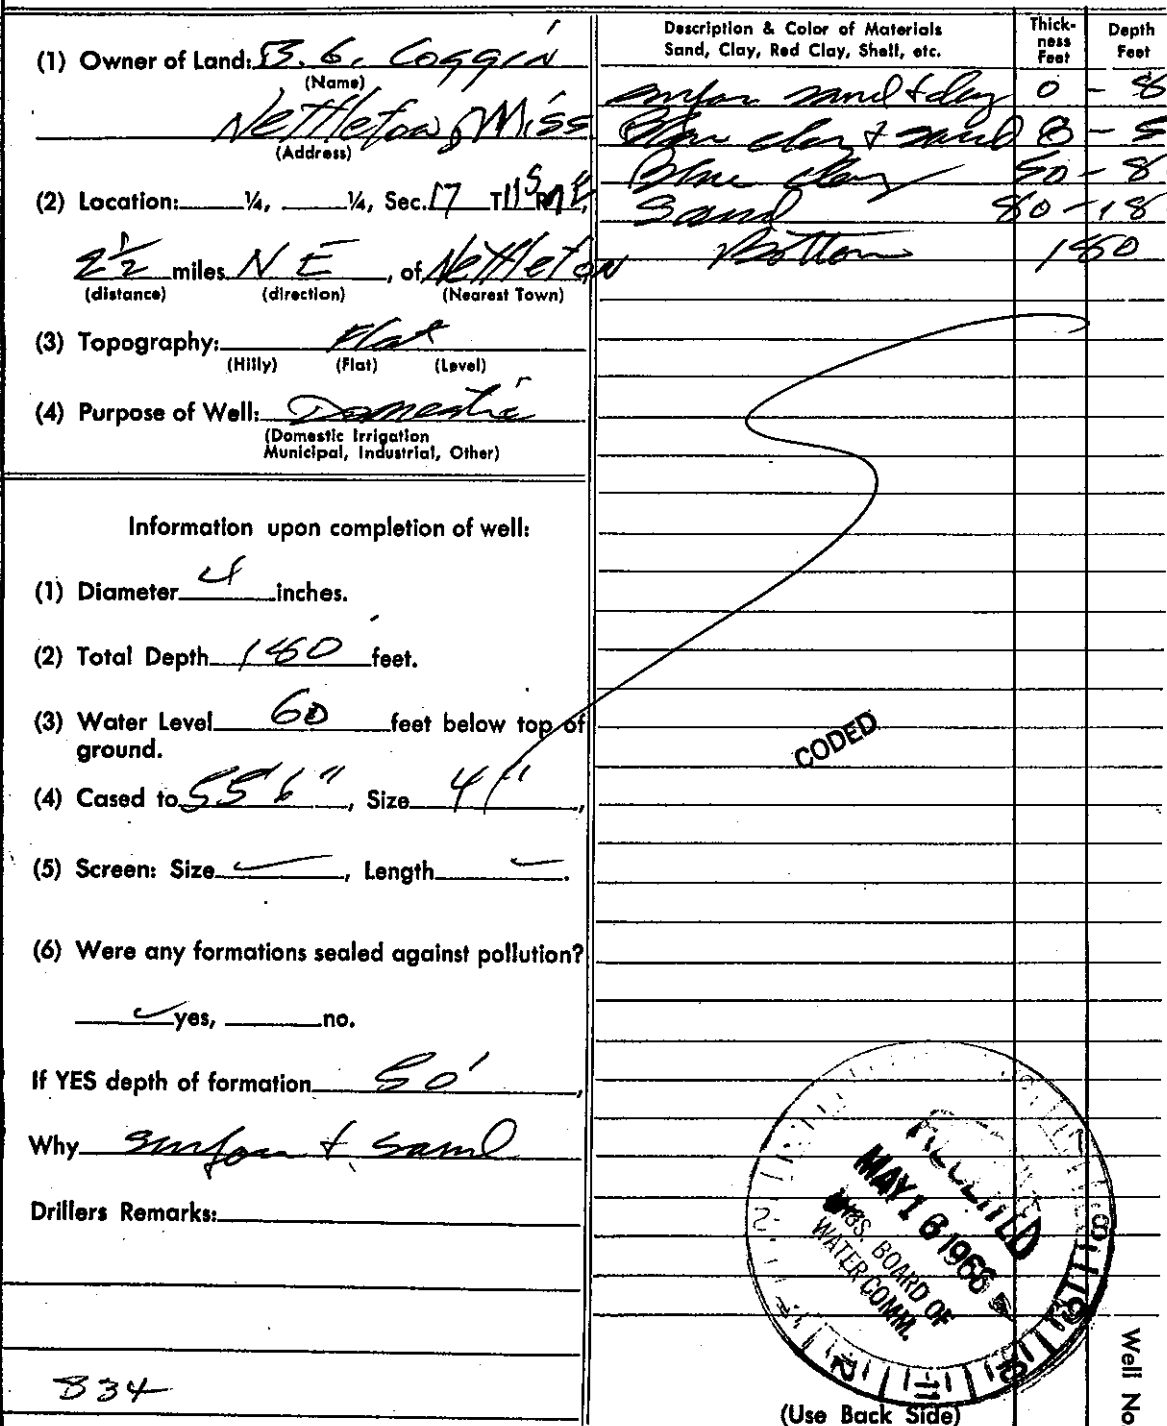 (1) Owner of Land: B. G. Coggin
(Name)
Nettleton, Miss
(Address)
(2) Location: ¼, ¼, Sec. 17 T11S
2½ miles N E, of Nettleton
(distance) (direction) (Nearest Town)
(3) Topography: Flat
(Hilly) (Flat) (Level)
(4) Purpose of Well: Domestic
(Domestic Irrigation
Municipal, Industrial, Other)
Information upon completion of well:
(1) Diameter 4 inches.
(2) Total Depth 180 feet.
(3) Water Level 60 feet below top of
ground.
(4) Cased to 55'6", Size 4",
(5) Screen: Size, Length.
(6) Were any formations sealed against pollution?
✓ yes, no.
If YES depth of formation 50',
Why & sand
Drillers Remarks:
834
Description & Color of Materials
Sand, Clay, Red Clay, Shell, etc.
Thick-
ness
Feet
Depth
Feet
sand & clay 0 - 8
Blue clay & sand 8 - 5
Blue clay 50 - 8
Sand 80 - 18
Bottom 180
CODED
RECEIVED
MAY 16 1966
MISS. BOARD OF
WATER COMM.
(Use Back Side)
Well No